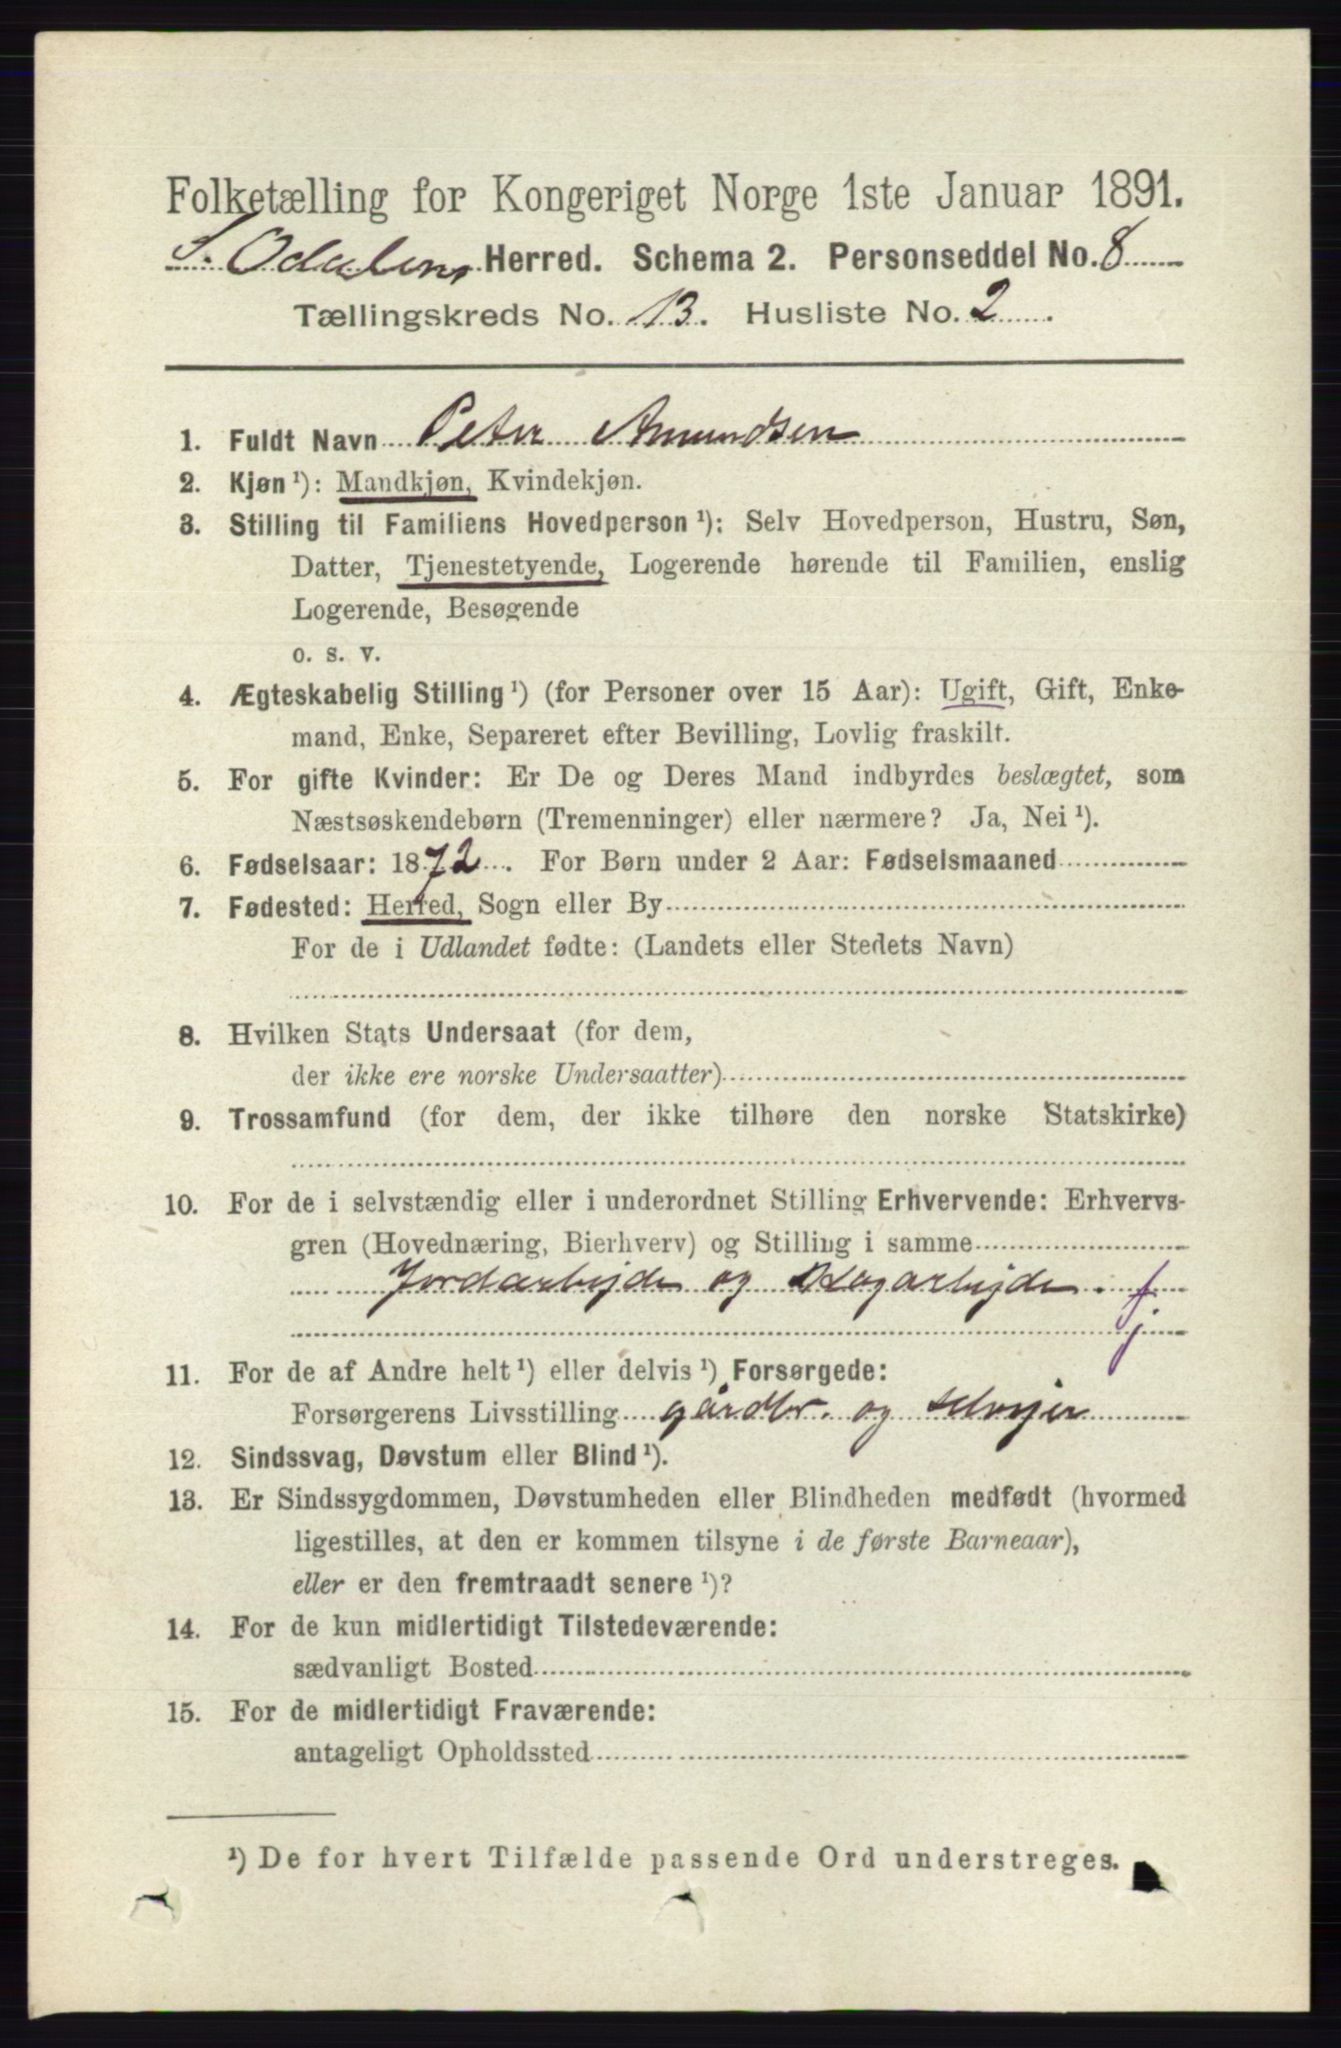 Folketælling for Kongeriget Norge 1ste Januar 1891.
S. Odalens Herred. Schema 2. Personseddel No. 8
Tællingskreds No. 13. Husliste No. 2.
1. Fuldt Navn Peter Amundsen
2. Kjøn ¹): Mandkjøn, Kvindekjøn.
3. Stilling til Familiens Hovedperson ¹): Selv Hovedperson, Hustru, Søn,
Datter, Tjenestetyende, Logerende hørende til Familien, enslig
Logerende, Besøgende
o. s. v.
4. Ægteskabelig Stilling ¹) (for Personer over 15 Aar): Ugift, Gift, Enke-
mand, Enke, Separeret efter Bevilling, Lovlig fraskilt.
5. For gifte Kvinder: Er De og Deres Mand indbyrdes beslægtet, som
Næstsøskendebørn (Tremenninger) eller nærmere? Ja, Nei ¹).
6. Fødselsaar: 1872. For Børn under 2 Aar: Fødselsmaaned
7. Fødested: Herred, Sogn eller By
For de i Udlandet fødte: (Landets eller Stedets Navn)
8. Hvilken Stats Undersaat (for dem,
der ikke ere norske Undersaatter)
9. Trossamfund (for dem, der ikke tilhøre den norske Statskirke)
10. For de i selvstændig eller i underordnet Stilling Erhvervende: Erhvervs-
gren (Hovednæring, Bierhverv) og Stilling i samme
Jordarbejde og Skogarbejde. f
j
11. For de af Andre helt ¹) eller delvis ¹) Forsørgede:
Forsørgerens Livsstilling gårdbr. og selvejer
12. Sindssvag, Døvstum eller Blind ¹).
13. Er Sindssygdommen, Døvstumheden eller Blindheden medfødt (hvormed
ligestilles, at den er kommen tilsyne i de første Barneaar),
eller er den fremtraadt senere ¹)?
14. For de kun midlertidigt Tilstedeværende:
sædvanligt Bosted
15. For de midlertidigt Fraværende:
antageligt Opholdssted
¹) De for hvert Tilfælde passende Ord understreges.